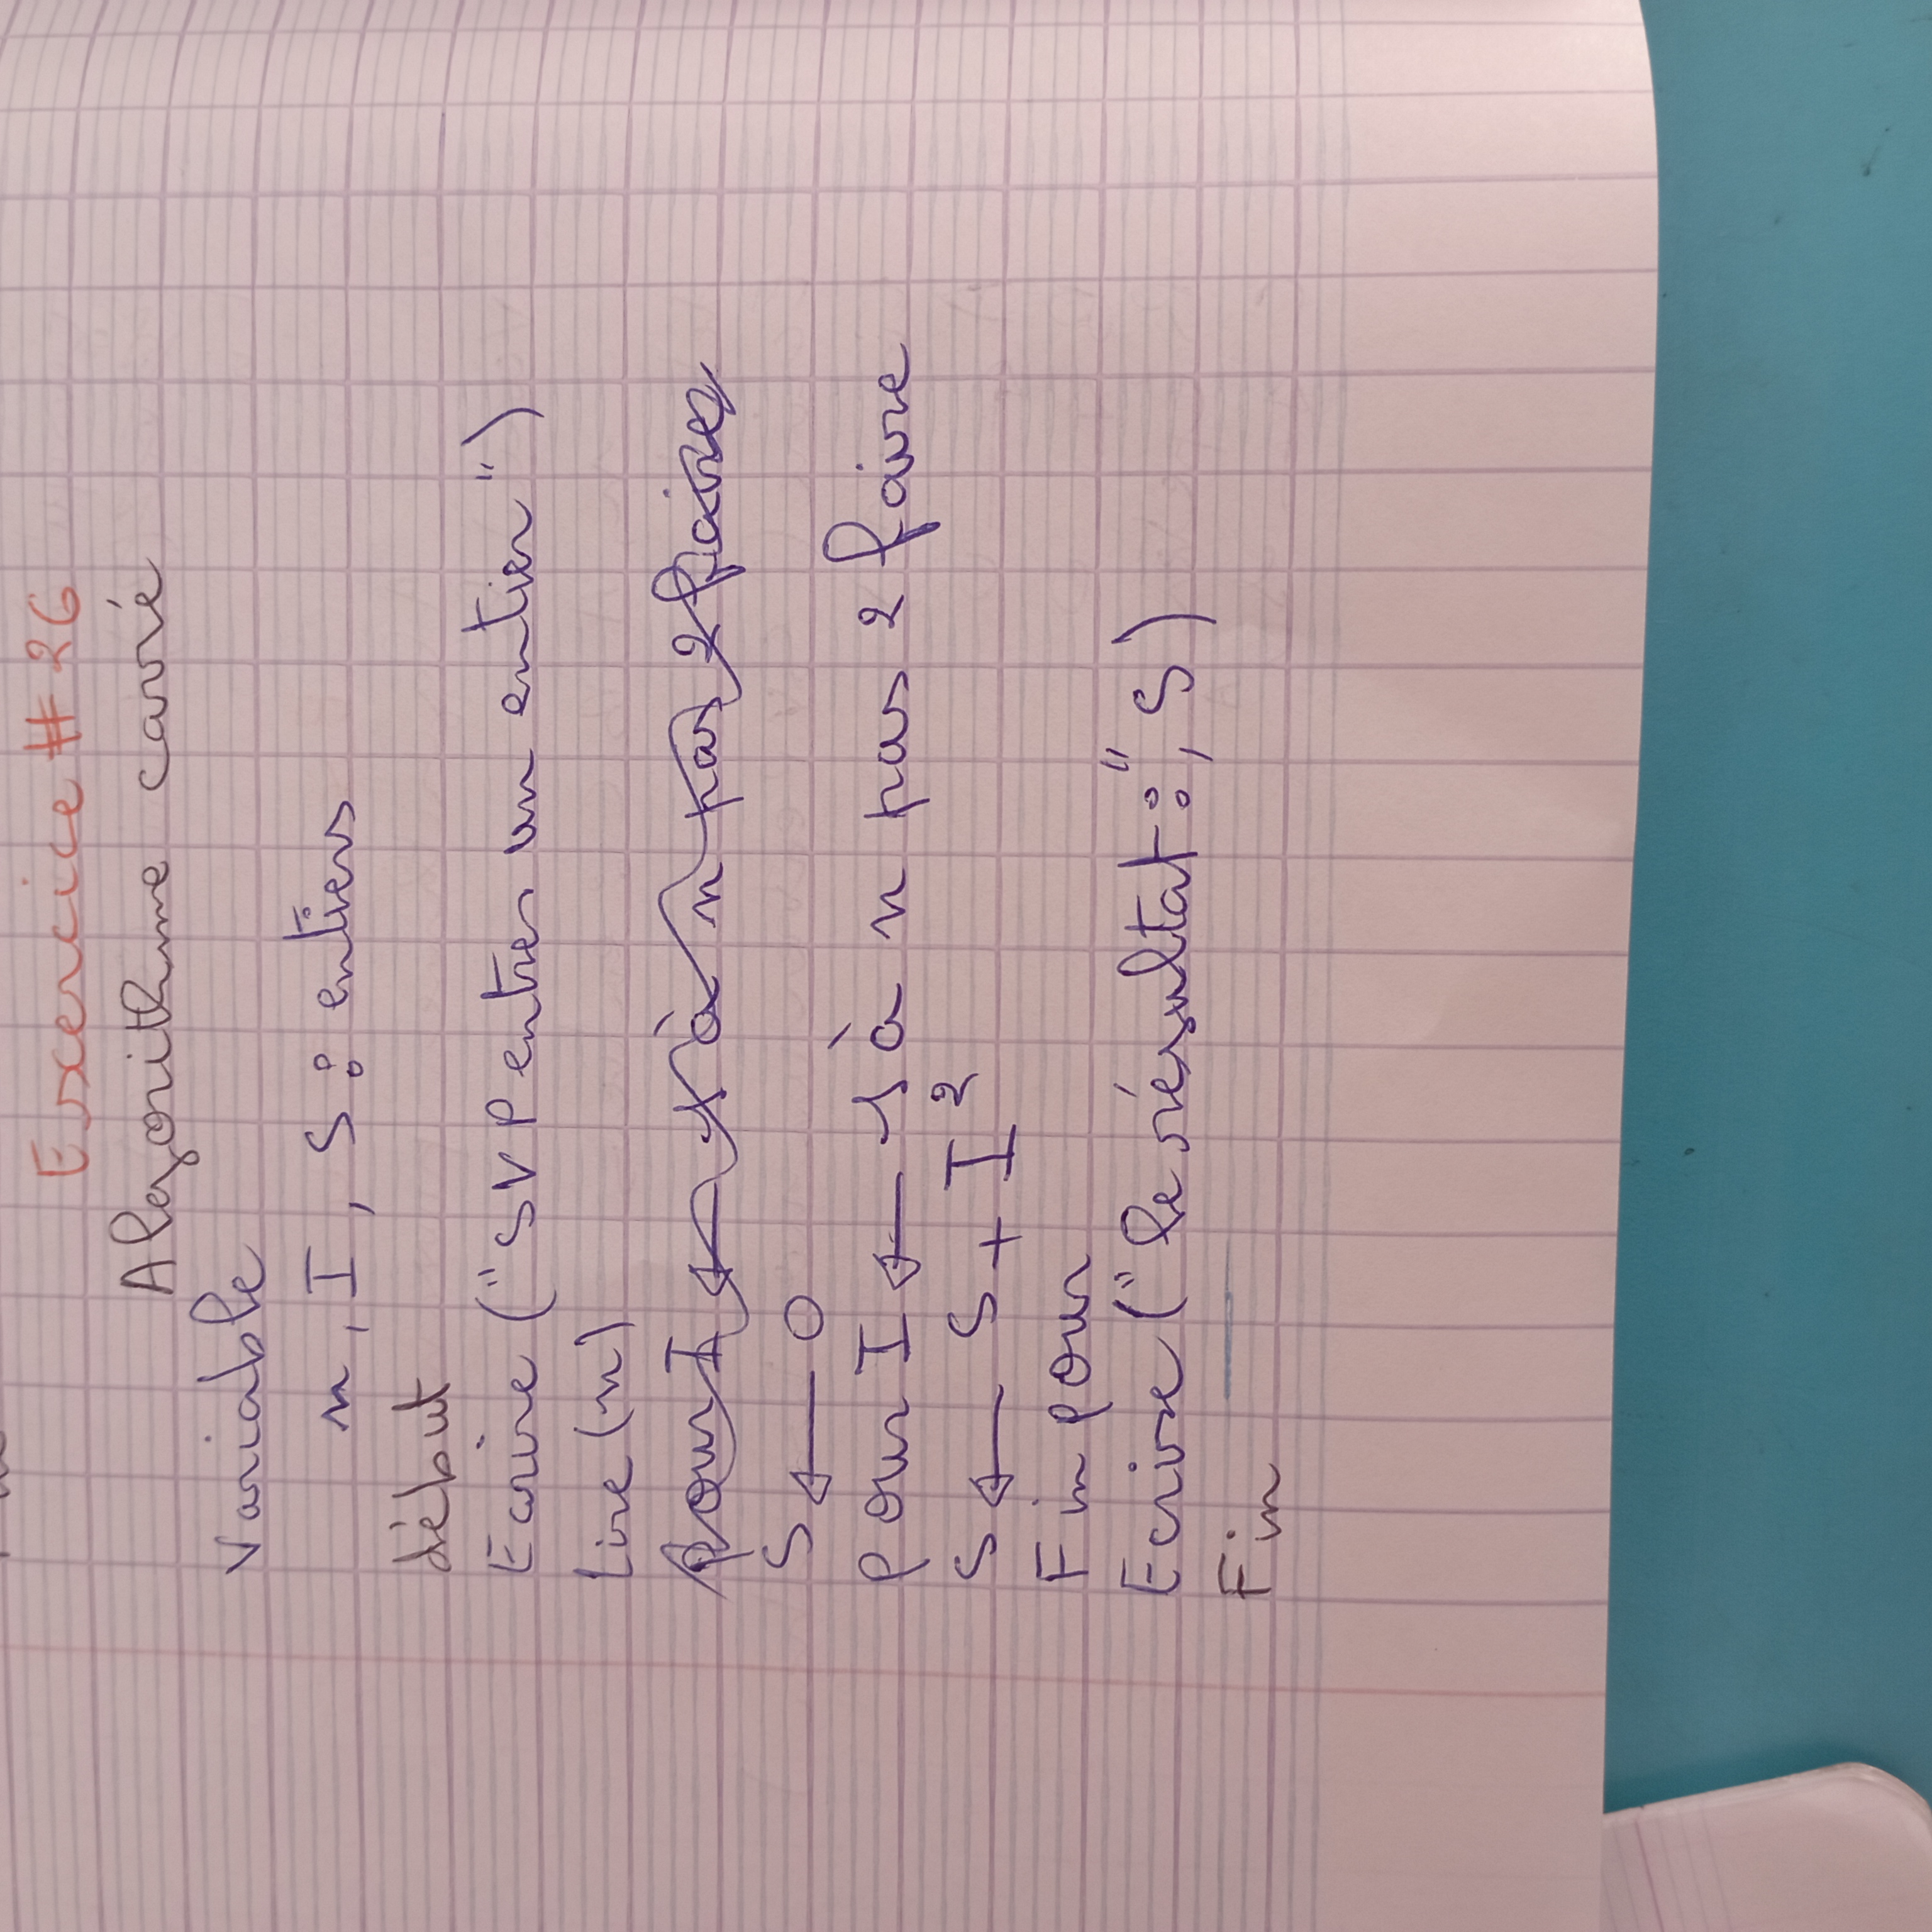 Exercice # 26
Algorithme carré
Variable
n, I, S : entiers
début
Ecrire ("SVP entrer un entier")
Lire (n)
pour I ← 1 à n pas 2 faire
S ← 0
pour I ← 1 à n pas 2 faire
S ← S + I²
Fin pour
Ecrire ("le résultat :", S)
Fin